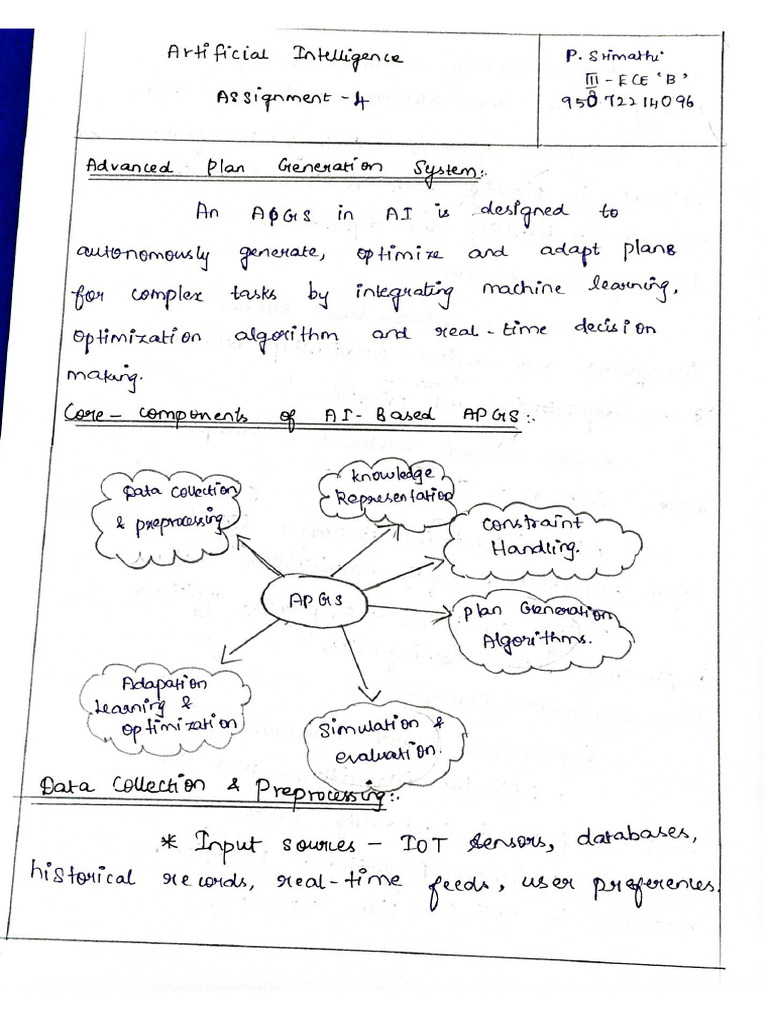 Artificial Intelligence
Assignment - 4
P. Srimathi
III - ECE 'B'
950722214096
Advanced Plan Generation System:-
An APGS in AI is designed to
autonomously generate, optimize and adapt plans
for complex tasks by integrating machine learning,
optimization algorithm and real-time decision
making.
Core-components of AI-Based APGS:-
Data Collection
& preprocessing.
Knowledge
Representation
Constraint
Handling.
APGS
Plan Generation
Algorithms.
Adapation
Learning &
optimization
Simulation &
evaluation.
Data Collection & Preprocessing:-
* Input sources - IOT sensors, databases,
historical records, real-time feeds, user preferences.